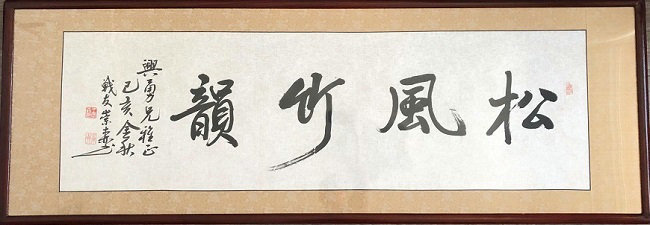 松風竹韻
興勇兄雅正
己亥金秋
戰友崇壽